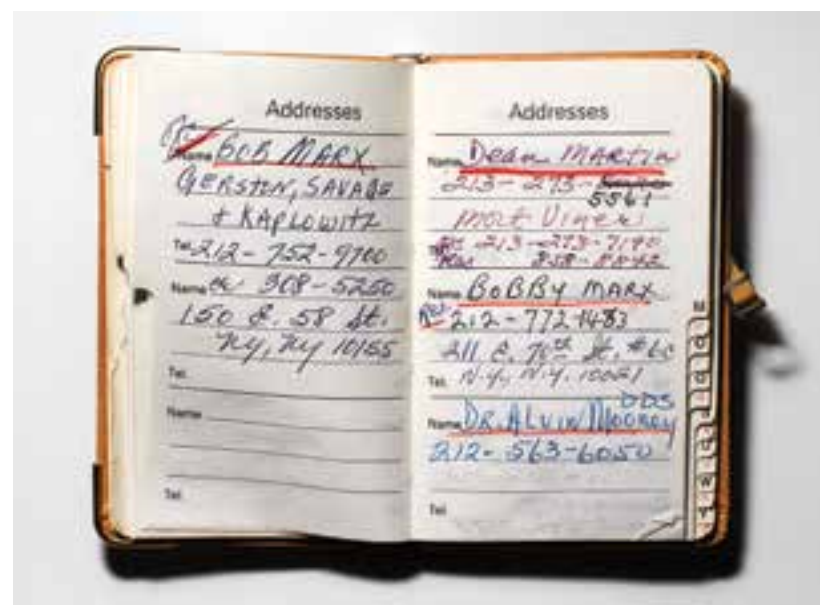 Addresses
Name BOB MARX
GERSTEN, SAVAGE
+ KAPLOWITZ
Tel. 212-752-9700
Name 308-5250
150 E. 58 St.
NY, NY 10155
Tel.
Name
Tel.
Addresses
Name Dean MARTIN
213-273-
5561
Mort Viner
213-273-7190
858-
Name BOBBY MARX
Res. 212-772-1483
211 E. 70th St. #6C
Tel. N.Y., N.Y. 10021
DDS
Name DR. ALVIN MOOREY
212-563-6050
Tel.
M
O
Q
W
Y